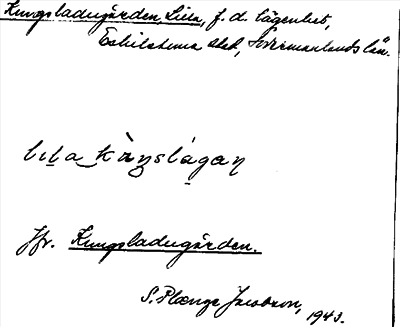 Kungsladugården Lilla, f. d. lägenhet,
Eskilstuna stad, Södermanlands län.
lila kùŋslágaṇ
Jfr. Kungsladugården.
S. Plænge Jacobson, 1943.